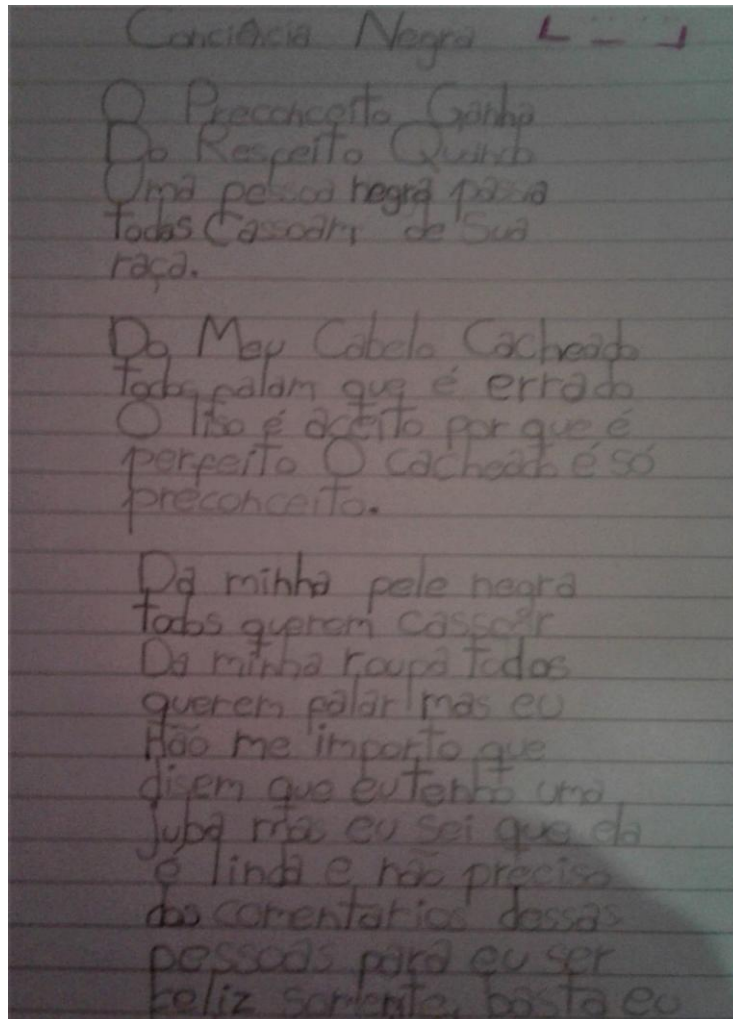 Conciência Negra
O Preconceito Ganha
Do Respeito Quando
Uma pessoa negra passa
todas Cassoam de Sua
raça.
Do Meu Cabelo Cacheado
todos falam que é errado
O liso é aceito por que é
perfeito O cacheado é só
preconceito.
Da minha pele negra
todos querem cassoar
Da minha roupa todos
querem falar mas eu
Não me importo que
disem que eu tenho uma
juba mas eu sei que ela
é linda e não preciso
dos comentarios dessas
pessoas para eu ser
feliz somente basta eu